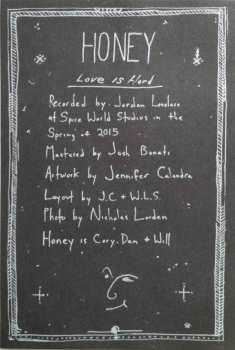 HONEY
Love is Hard
Recorded by Jordan Lovelace
at Spice World Studios in the
Spring of 2015
Mastered by Josh Bonati
Artwork by Jennifer Calandra
Layout by J.C + W.L.S.
Photo by Nicholas Lordan
Honey is Cory, Dan + Will